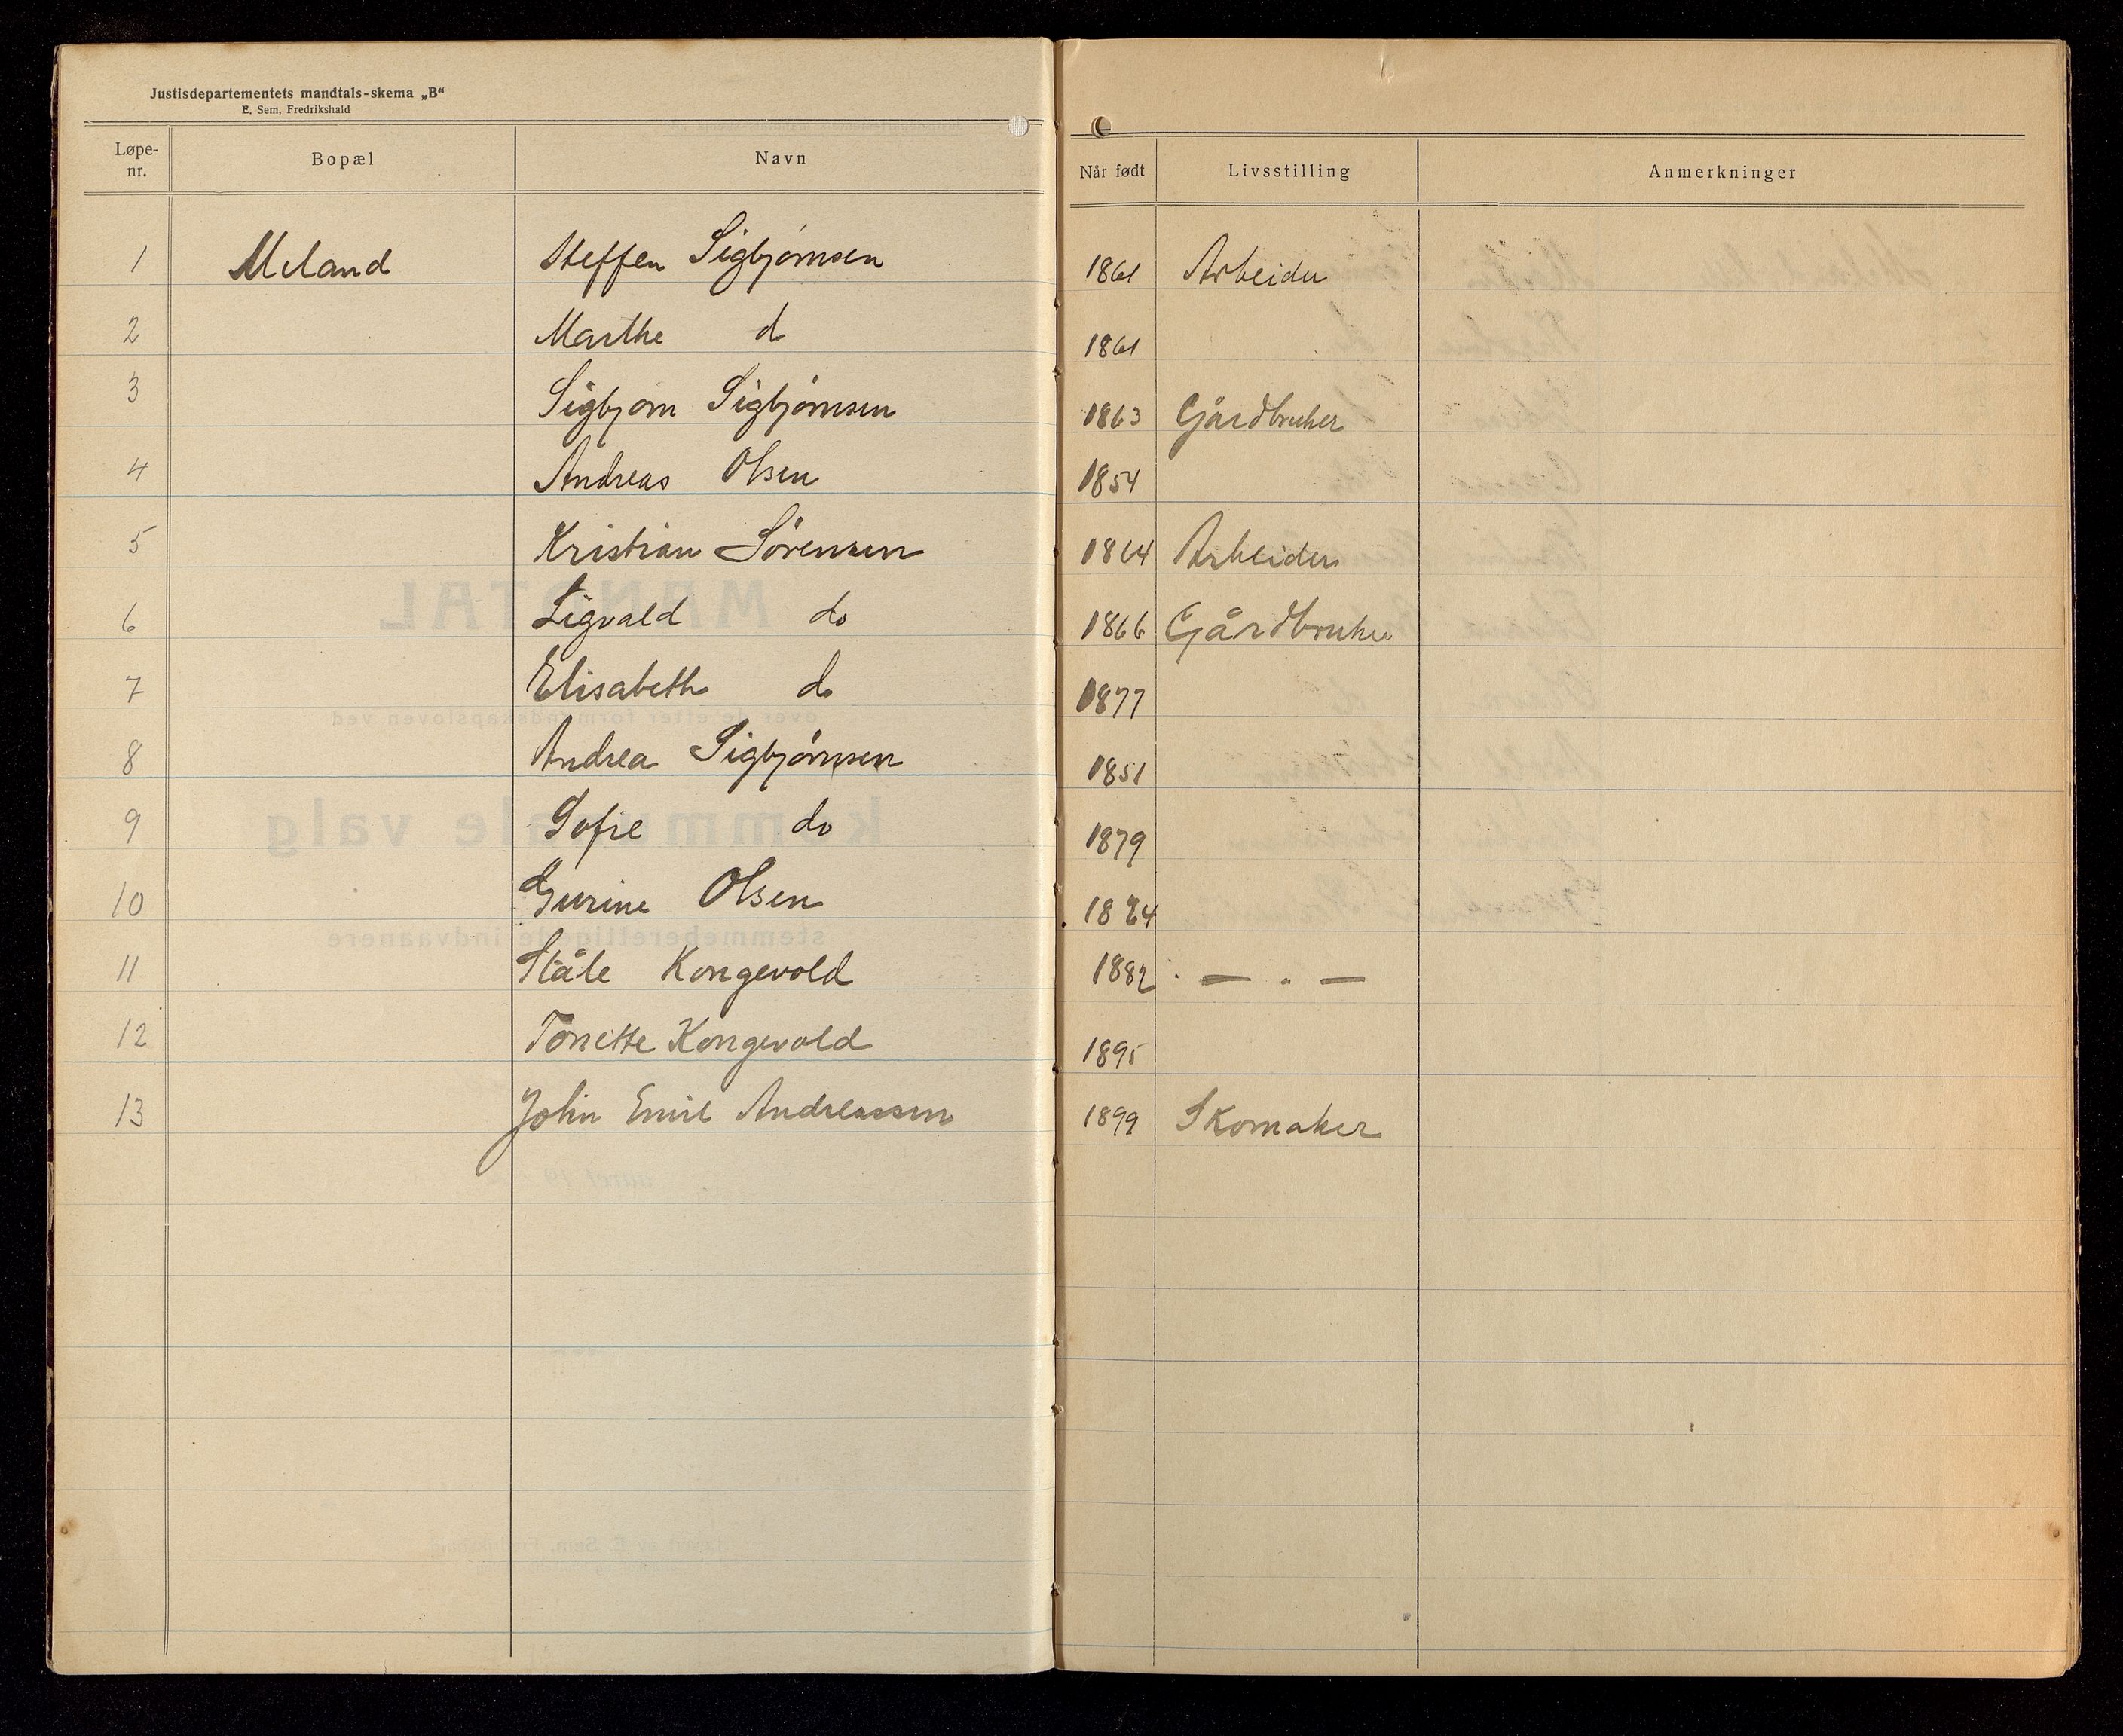 Justisdepartementets mandtals-skema „B“
E. Sem, Fredrikshald
Løpe-nr. Bopæl Navn Når født Livsstilling Anmerkninger
1 Meland Steffen Sigbjørnsen 1861 Arbeider
2 Marthe do 1861
3 Sigbjørn Sigbjørnsen 1863 Gårdbruker
4 Andreas Olsen 1854
5 Kristian Sørensen 1864 Arbeider
6 Sigvald do 1866 Gårdbruker
7 Elisabeth do 1877
8 Andrea Sigbjørnsen 1851
9 Sofie do 1879
10 Gurine Olsen
11 Ståle Kongevold 1882 — " —
12 Tonette Kongevold 1895
13 John Emil Andreassen 1899 Skomaker